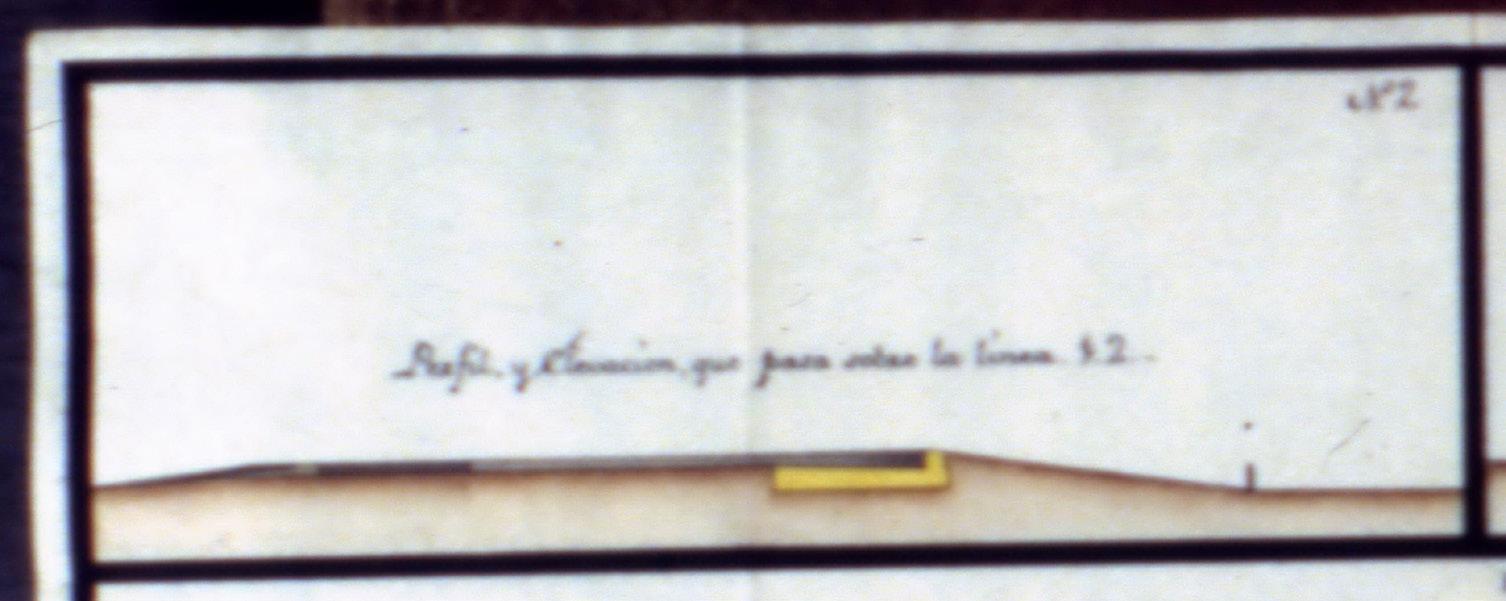 Nº 2
Perfil y Elevacion, que pasa sobre la linea 1.2.